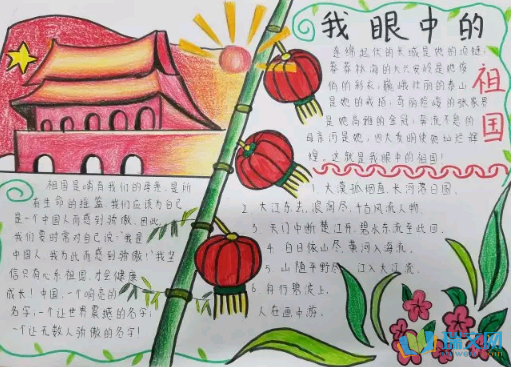 我眼中的
祖国
连绵起伏的长城是她的
莽莽林海的大兴安岭是她俊
俏的 巍峨壮丽的泰山
是她的 奇丽 的张家界
是她高雅的 奔流不息的
母亲河是她 四大发明使她灿烂辉
煌。这就是我眼中的祖国!
1. 大漠孤烟直,长河落日圆。
2. 大江东去,浪淘尽,千古风流人物。
3. 天门中断楚江开,碧水东流至此回。
4. 白日依山尽,黄河入海流。
5. 山随平野尽,江入大荒流。
6. 舟行碧波上,
人在画中游。
祖国是哺育我们的母亲,是所
有生命的摇篮,我们应该为自己
是一个中国人而感到骄傲。因此,
我们要时常对自己说:“我是
中国人,我为此而感到骄傲!”我坚
信只有心系祖国,才会健康
成长!中国,一个响亮的
名字;一个让世界震撼的名字;
一个让无数人骄傲的名字!
瑞文网